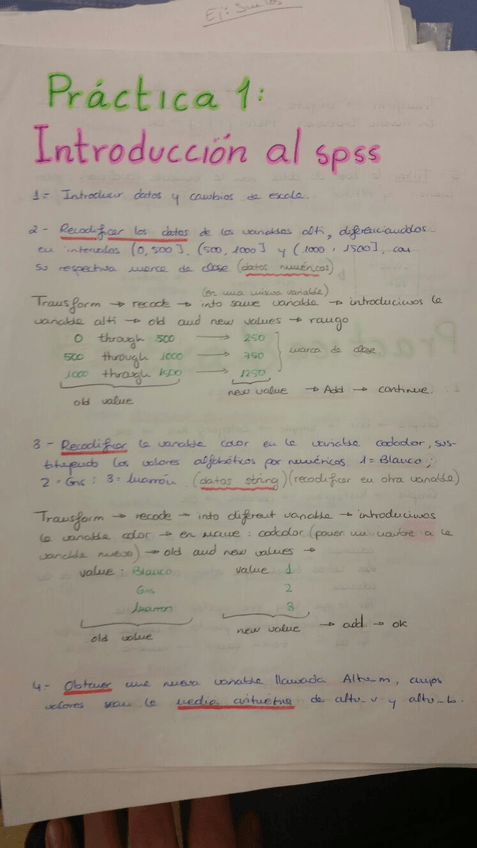 Ej: Suelos
Práctica 1:
Introducción al spss
1- Introducir datos y cambios de escala.
2- Recodificar los datos de las variables alti, diferenciandolos
en intervalos (0,500], (500,1000] y (1000,1500], con
su respectiva marca de clase (datos numéricos)
(en una nueva variable)
Transform → recode → into same variable → introducimos la
variable alti → old and new values → rango
0 through 500 → 250
500 through 1000 → 750
1000 through 1500 → 1250
marca de clase
old value
new value → Add → continue.
3- Recodificar la variable color en la variable codcolor, sus-
tituyendo los valores alfabéticos por numéricos. 1=Blanco;
2=Gris; 3=Marrón. (datos string) (recodificar en otra variable)
Transform → recode → into diferent variable → introducimos
la variable color → en name: codcolor (poner un nombre a la
variable nueva) → old and new values →
value: Blanco value 1
Gris 2
Marron 3
old value
new value → add → ok
4- Obtener una nueva variable llamada Altu_m, cuyos
valores sean la media aritmetica de altu_v y altu_b.